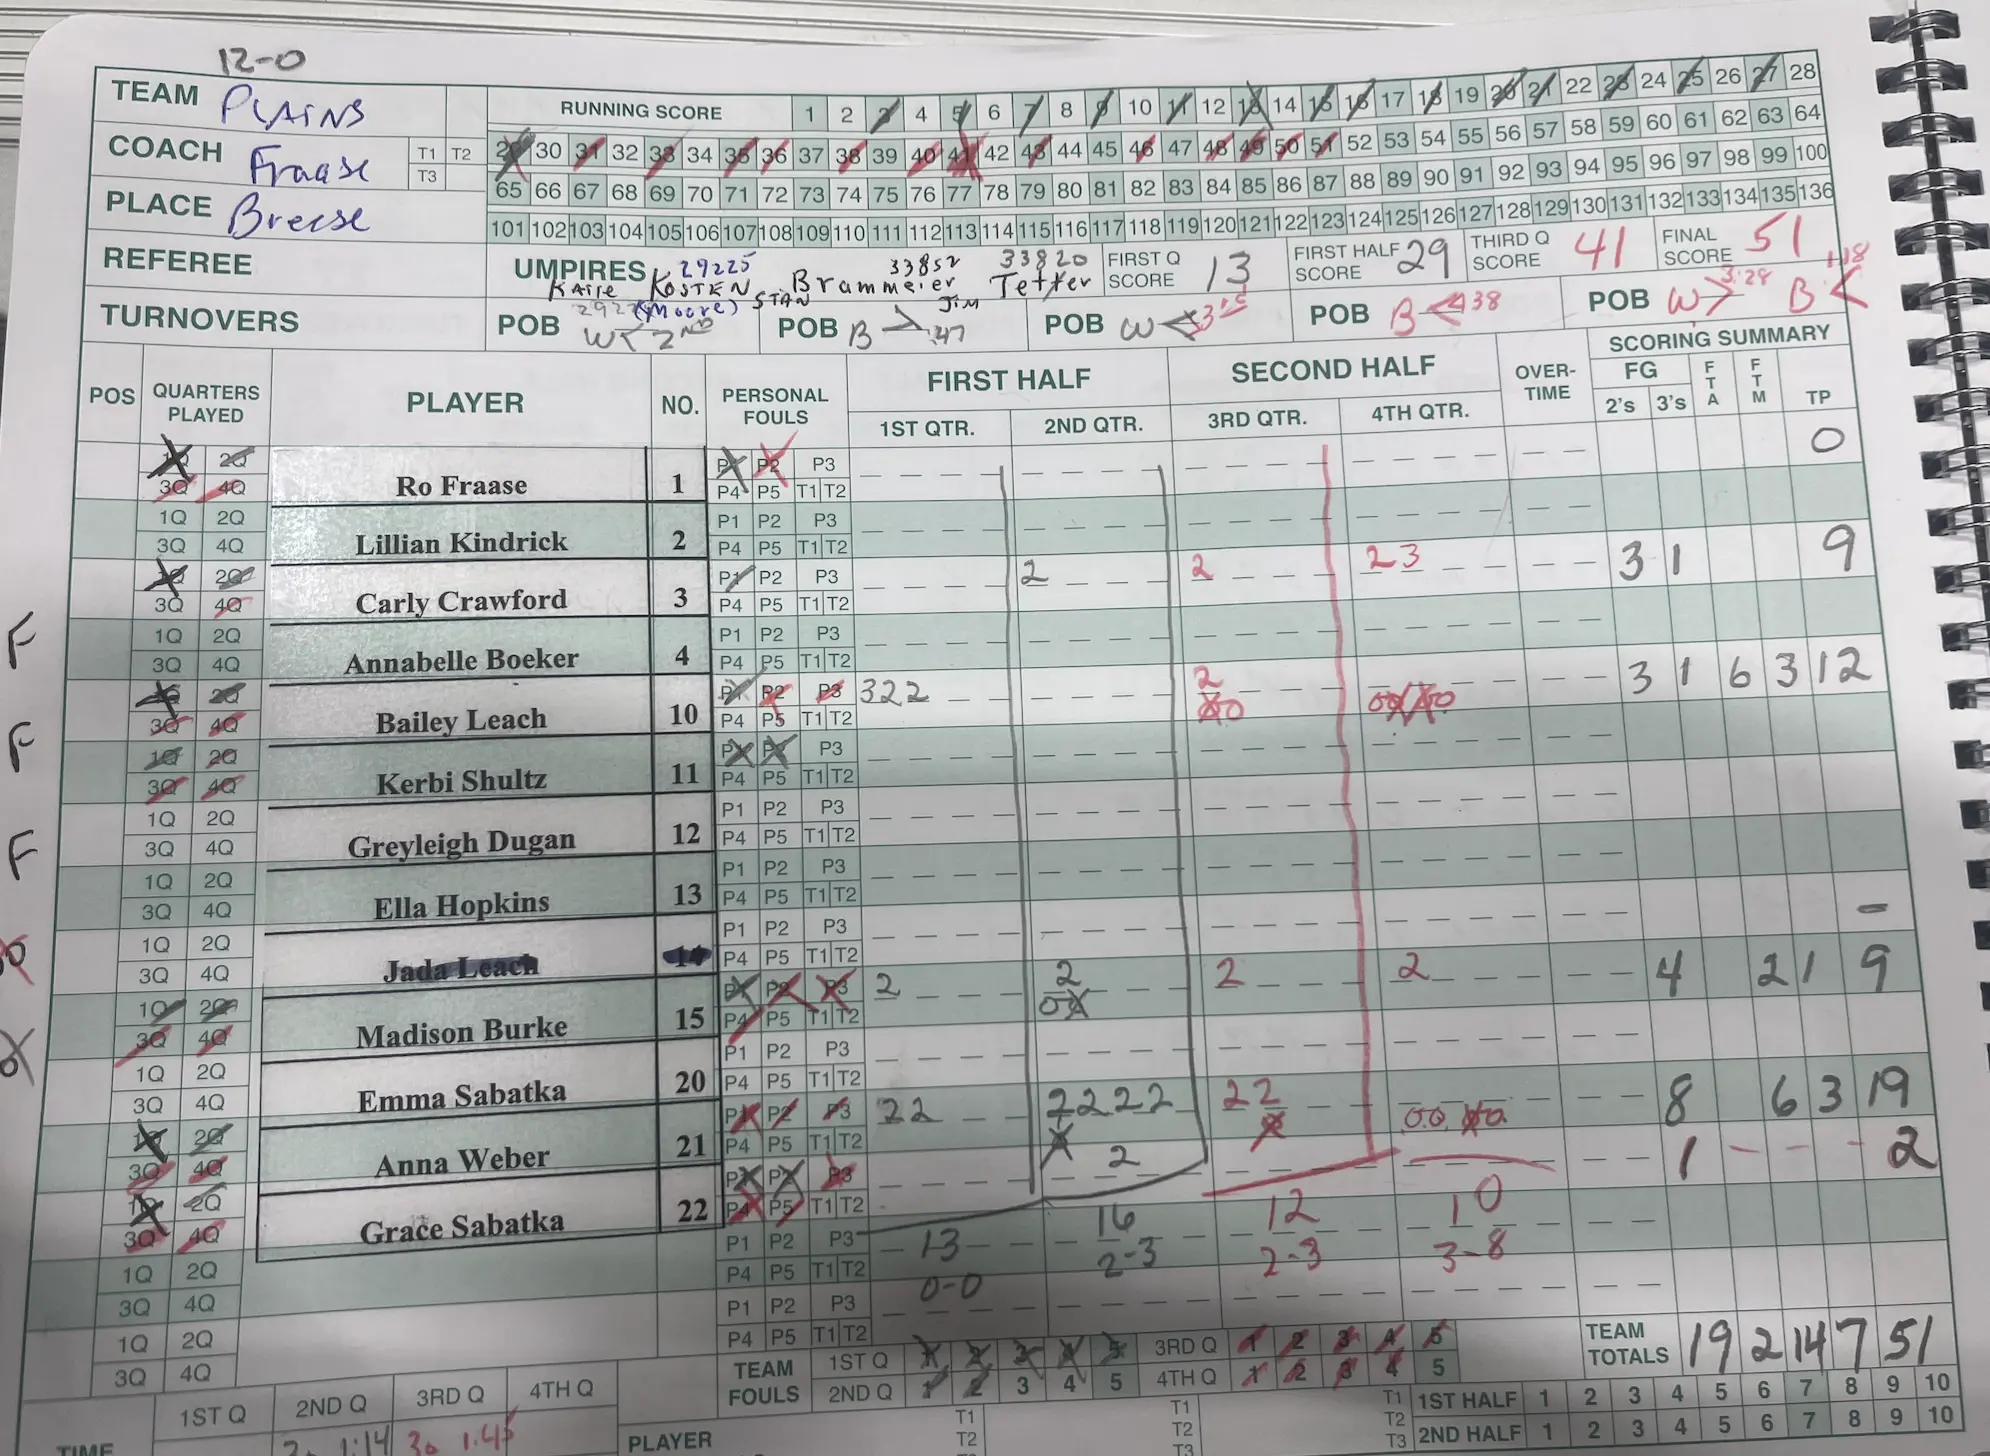 12-0
TEAM PLAINS
RUNNING SCORE 1 2 3 4 5 6 7 8 9 10 11 12 13 14 15 16 17 18 19 20 21 22 23 24 25 26 27 28
COACH Fraase T1 T2 T3
29 30 31 32 33 34 35 36 37 38 39 40 41 42 43 44 45 46 47 48 49 50 51 52 53 54 55 56 57 58 59 60 61 62 63 64
65 66 67 68 69 70 71 72 73 74 75 76 77 78 79 80 81 82 83 84 85 86 87 88 89 90 91 92 93 94 95 96 97 98 99 100
PLACE Breese
101 102 103 104 105 106 107 108 109 110 111 112 113 114 115 116 117 118 119 120 121 122 123 124 125 126 127 128 129 130 131 132 133 134 135 136
REFEREE
UMPIRES 29225 33852 33820
KOSTEN Brammeier Tetter
FIRST Q SCORE 13
FIRST HALF SCORE 29
THIRD Q SCORE 41
FINAL SCORE 51
TURNOVERS
(Moore) STAN Jim
POB W < 2ND
POB B > .47
POB W <
POB B < 38
POB W > 3:28 B < 1:18
POS QUARTERS PLAYED PLAYER NO. PERSONAL FOULS FIRST HALF SECOND HALF OVER-TIME SCORING SUMMARY
1ST QTR. 2ND QTR. 3RD QTR. 4TH QTR. FG 2's 3's FTA FTM TP
1Q 2Q 3Q 4Q Ro Fraase 1 P1 P2 P3 P4 P5 T1 T2 0
1Q 2Q 3Q 4Q Lillian Kindrick 2 P1 P2 P3 P4 P5 T1 T2
1Q 2Q 3Q 4Q Carly Crawford 3 P1 P2 P3 P4 P5 T1 T2 2 2 2 3 3 1 9
F 1Q 2Q 3Q 4Q Annabelle Boeker 4 P1 P2 P3 P4 P5 T1 T2
1Q 2Q 3Q 4Q Bailey Leach 10 P1 P2 P3 P4 P5 T1 T2 3 2 2 2 3 1 6 3 12
F 1Q 2Q 3Q 4Q Kerbi Shultz 11 P1 P2 P3 P4 P5 T1 T2
1Q 2Q 3Q 4Q Greyleigh Dugan 12 P1 P2 P3 P4 P5 T1 T2
F 1Q 2Q 3Q 4Q Ella Hopkins 13 P1 P2 P3 P4 P5 T1 T2
1Q 2Q 3Q 4Q Jada Leach 14 P1 P2 P3 P4 P5 T1 T2 -
1Q 2Q 3Q 4Q Madison Burke 15 P1 P2 P3 P4 P5 T1 T2 2 2 2 2 4 2 1 9
1Q 2Q 3Q 4Q Emma Sabatka 20 P1 P2 P3 P4 P5 T1 T2
1Q 2Q 3Q 4Q Anna Weber 21 P1 P2 P3 P4 P5 T1 T2 2 2 2 2 2 2 2 2 8 6 3 19
1Q 2Q 3Q 4Q Grace Sabatka 22 P1 P2 P3 P4 P5 T1 T2 2 1 - - - 2
1Q 2Q 3Q 4Q P1 P2 P3 P4 P5 T1 T2 13 16 12 10
0-0 2-3 2-3 3-8
1Q 2Q 3Q 4Q P1 P2 P3 P4 P5 T1 T2
TEAM FOULS 1ST Q 1 2 3 4 5 3RD Q 1 2 3 4 5
2ND Q 1 2 3 4 5 4TH Q 1 2 3 4 5
TEAM TOTALS 19 2 14 7 51
1ST Q 2ND Q 3RD Q 4TH Q
TIME 1:14 30 1:45
PLAYER T1 T2 T1 T2 T3
T1 T2 T3 1ST HALF 1 2 3 4 5 6 7 8 9 10
2ND HALF 1 2 3 4 5 6 7 8 9 10